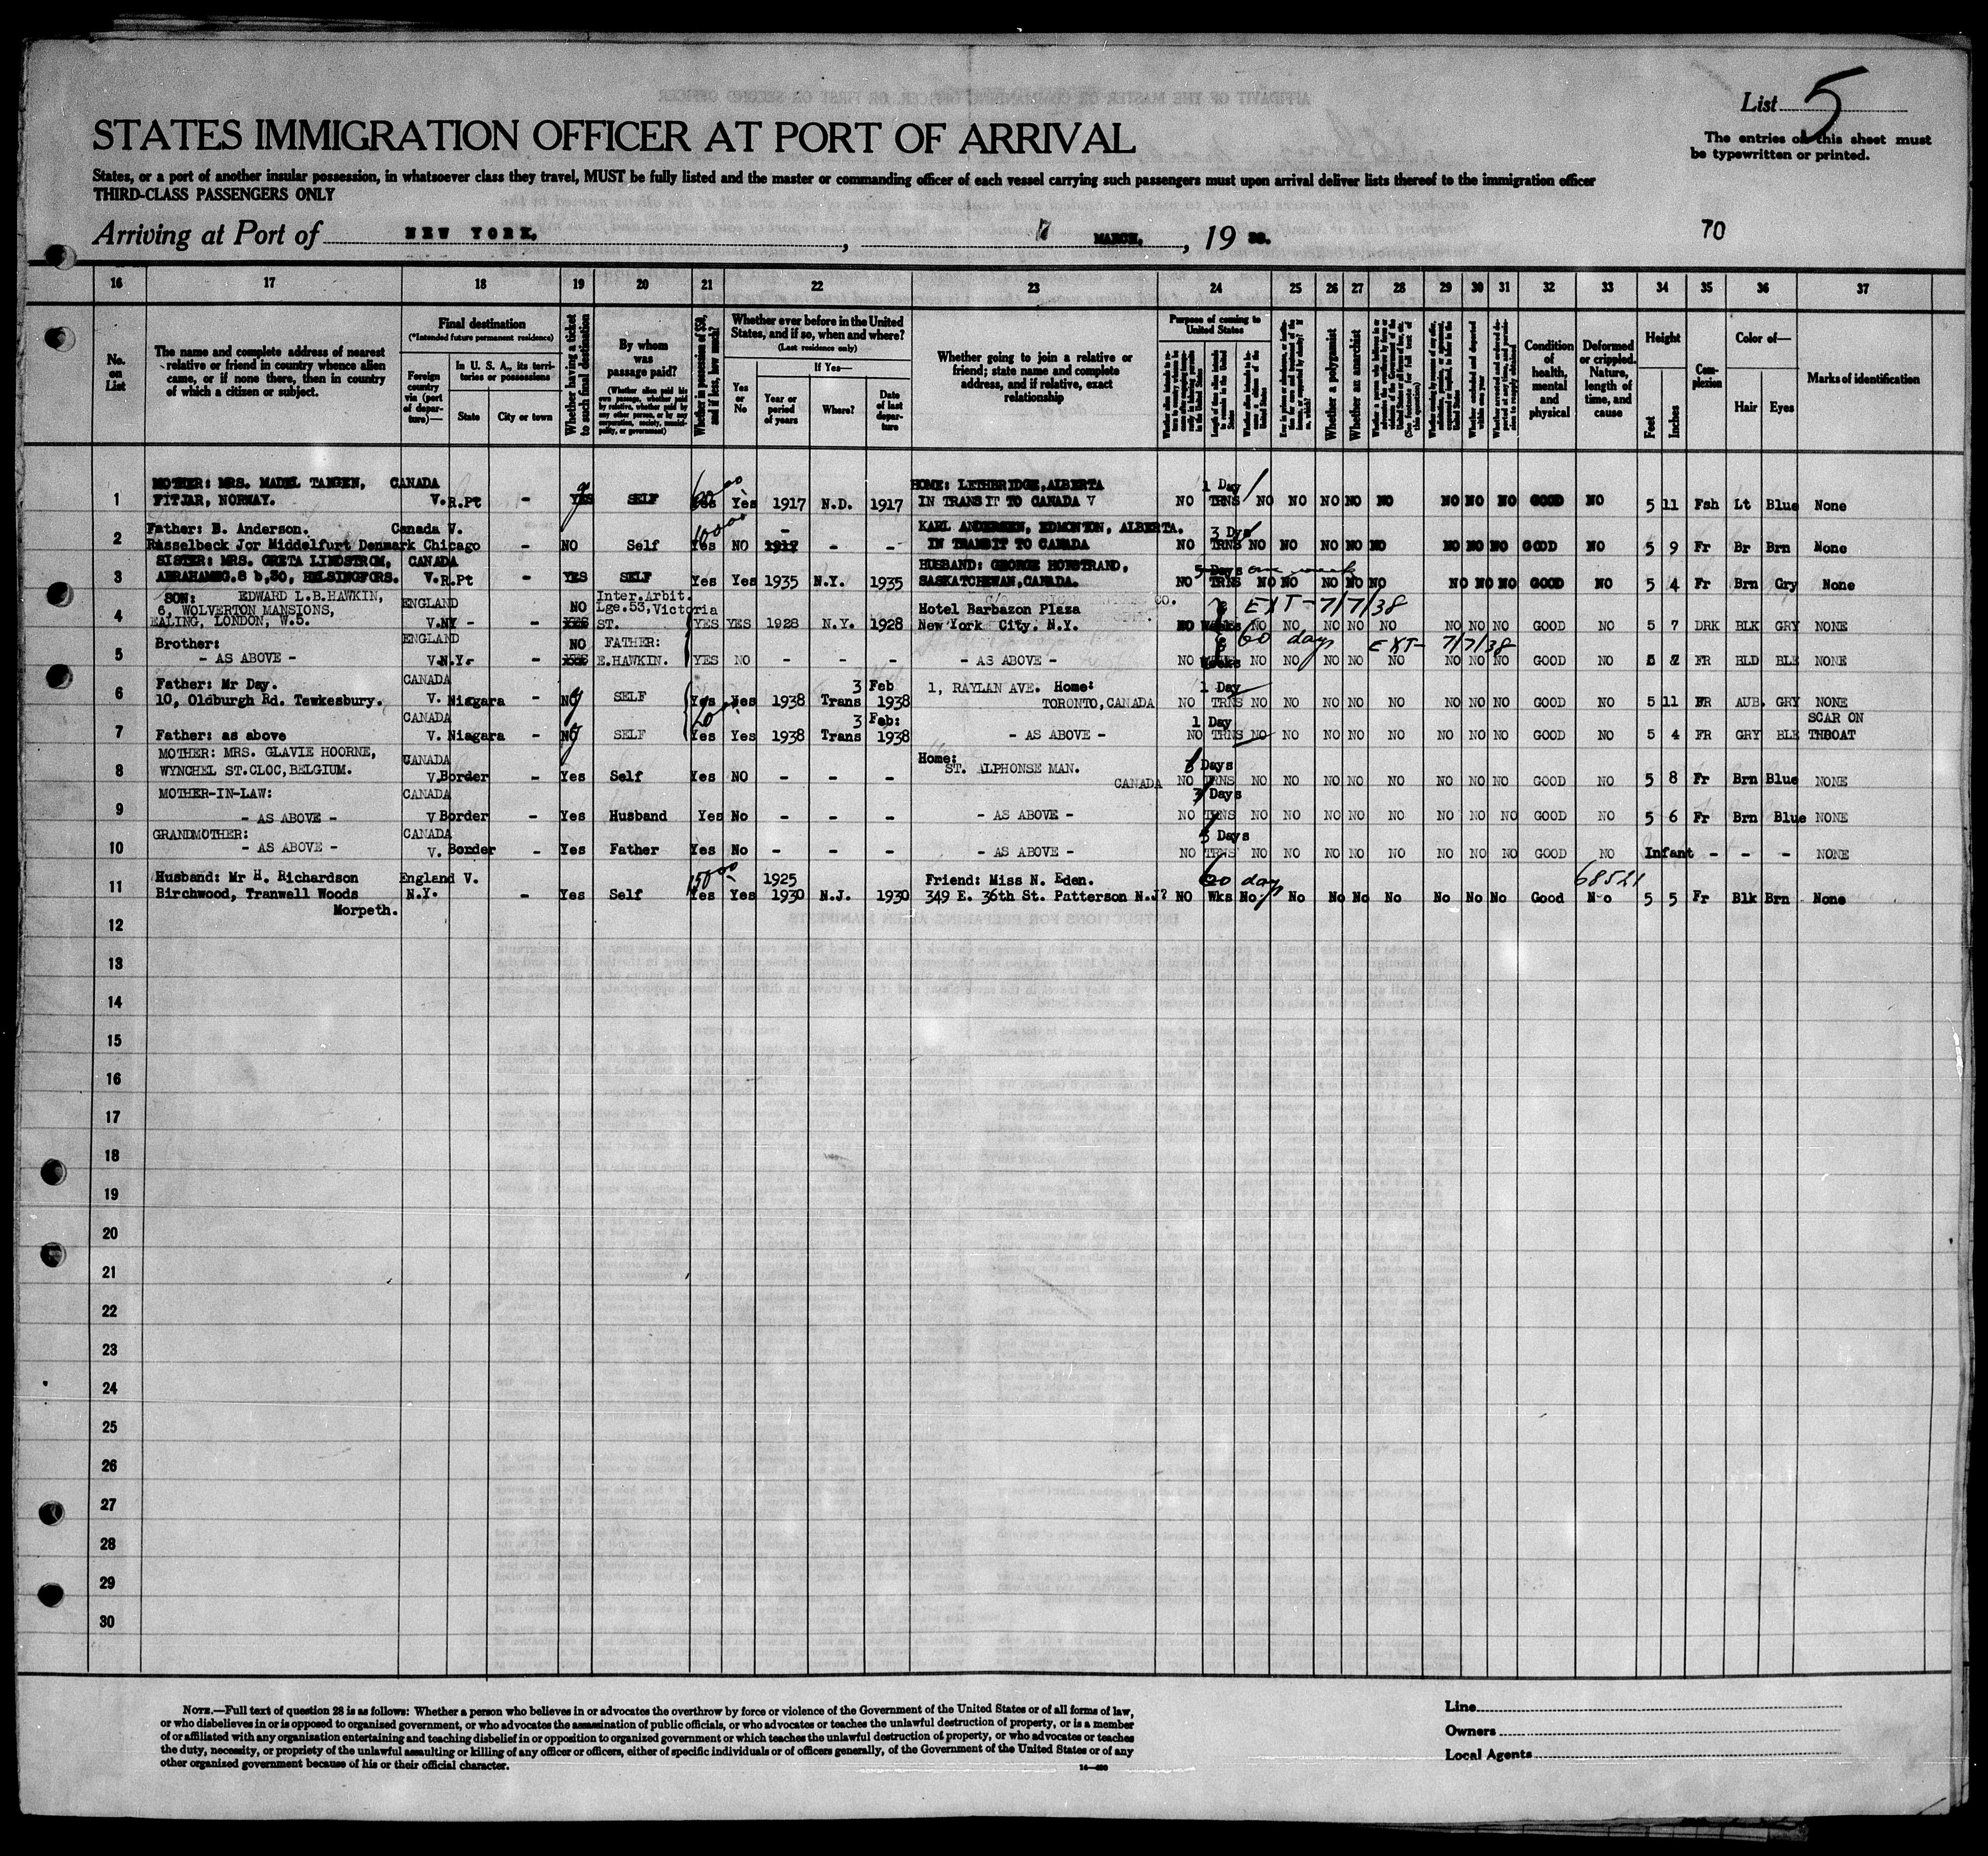 List 5
The entries on this sheet must
be typewritten or printed.
STATES IMMIGRATION OFFICER AT PORT OF ARRIVAL
States, or a port of another insular possession, in whatsoever class they travel, MUST be fully listed and the master or commanding officer of each vessel carrying such passengers must upon arrival deliver lists thereof to the immigration officer
THIRD-CLASS PASSENGERS ONLY
Arriving at Port of NEW YORK, , 7 MARCH, , 19 38.
70
16 17 18 19 20 21 22 23 24 25 26 27 28 29 30 31 32 33 34 35 36 37
No. on List
The name and complete address of nearest relative or friend in country whence alien came, or if none there, then in country of which a citizen or subject.
Final destination
(*Intended future permanent residence)
Foreign country via (port of departure)—
In U. S. A., its territories or possessions
State
City or town
Whether having a ticket to such final destination
By whom was passage paid?
(Whether alien paid his own passage, whether paid by relative, whether paid by any other person, or by any corporation, society, municipality, or government)
Whether in possession of $50, and if less, how much?
Whether ever before in the United States, and if so, when and where?
(Last residence only)
Yes or No
If Yes—
Year or period of years
Where?
Date of last departure
Whether going to join a relative or friend; state name and complete address, and if relative, exact relationship
Purpose of coming to United States
Whether a polygamist
Whether an anarchist
Condition of health, mental and physical
Deformed or crippled. Nature, length of time, and cause
Height
Feet
Inches
Complexion
Color of—
Hair
Eyes
Marks of identification
1 MOTHER: MRS. MADEL TANGEN, CANADA HOME: LETHBRIDGE, ALBERTA 1 Day
FITJAR, NORWAY. V. R.Pt - YES SELF Yes Yes 1917 N.D. 1917 IN TRANSIT TO CANADA V NO TRNS NO NO NO NO NO NO NO NO GOOD NO 5 11 Fsh Lt Blue None
2 Father: B. Anderson. Canada V. - KARL ANDERSEN, EDMONTON, ALBERTA. 3 Dys
Rasselbeck Jor Middelfurt Denmark Chicago - NO Self Yes NO 1917 - - IN TRANSIT TO CANADA NO TRNS NO NO NO NO NO NO NO NO GOOD NO 5 9 Fr Br Brn None
3 SISTER: MRS. GRETA LINDSTROM, CANADA HUSBAND: GEORGE HOFSTRAND, 5 Days one week
ABRAHAMSG. 8 b, 30, HELSINGFORS. V. R.Pt - YES SELF Yes Yes 1935 N.Y. 1935 SASKATCHEWAN, CANADA. NO TRNS NO NO NO NO NO NO NO NO GOOD NO 5 4 Fr Brn Gry None
4 SON: EDWARD L.B.HAWKIN, ENGLAND Inter.Arbit. CO.
6, WOLVERTON MANSIONS, NO Lge.53, Victoria Hotel Barbazon Plaza EXT - 7/7/38
EALING, LONDON, W.5. V.NY - - YES ST. YES YES 1928 N.Y. 1928 New York City. N.Y. NO Weeks NO NO NO NO NO NO NO NO GOOD NO 5 7 DRK BLK GRY NONE
5 Brother: ENGLAND NO FATHER: 60 days EXT - 7/7/38
- AS ABOVE - V.N.Y.- - YES E.HAWKIN. YES NO - - - - AS ABOVE - NO Weeks NO NO NO NO NO NO NO NO GOOD NO FR BLD BLE NONE
6 Father: Mr Day. CANADA 3 Feb 1, RAYLAN AVE. Home: 1 Day
10, Oldburgh Rd. Tewkesbury. V. Niagara - NO SELF Yes Yes 1938 Trans 1938 TORONTO, CANADA NO TRNS NO NO NO NO NO NO NO NO GOOD NO 5 11 FR AUB. GRY NONE
7 CANADA 3 Feb: 1 Day SCAR ON
Father: as above V. Niagara - NO SELF Yes Yes 1938 Trans 1938 - AS ABOVE - NO TRNS NO NO NO NO NO NO NO NO GOOD NO 5 4 FR GRY BLE THROAT
8 MOTHER: MRS. GLAVIE HOORNE, CANADA Home: Days
WYNCHEL ST.CLOC, BELGIUM. V.Border - Yes Self Yes NO - - - ST. ALPHONSE MAN. CANADA NO TRNS NO NO NO NO NO NO NO NO GOOD NO 5 8 Fr Brn Blue NONE
9 MOTHER-IN-LAW: CANADA 3 Days
- AS ABOVE - V Border - Yes Husband Yes No - - - - AS ABOVE - NO TRNS NO NO NO NO NO NO NO NO GOOD NO 5 6 Fr Brn Blue NONE
10 GRANDMOTHER: CANADA Days
- AS ABOVE - V. Border - Yes Father Yes No - - - - AS ABOVE - NO TRNS NO NO NO NO NO NO NO NO GOOD NO Infant - - - NONE
11 Husband: Mr H. Richardson England V. 1925 Friend: Miss N. Eden. 60 days 68521
Birchwood, Tranwell Woods N.Y. - Yes Self Yes Yes 1930 N.J. 1930 349 E. 36th St. Patterson N.J? NO Wks No No No No No No No No Good No 5 5 Fr Blk Brn None
Morpeth.
12
13
14
15
16
17
18
19
20
21
22
23
24
25
26
27
28
29
30
NOTE.—Full text of question 28 is as follows: Whether a person who believes in or advocates the overthrow by force or violence of the Government of the United States or of all forms of law,
or who disbelieves in or is opposed to organized government, or who advocates the assassination of public officials, or who advocates or teaches the unlawful destruction of property, or is a member
of or affiliated with any organization entertaining and teaching disbelief in or opposition to organized government or which teaches the unlawful destruction of property, or who advocates or teaches
the duty, necessity, or propriety of the unlawful assaulting or killing of any officer or officers, either of specific individuals or of officers generally, of the Government of the United States or of any
other organized government because of his or their official character.
Line
Owners
Local Agents